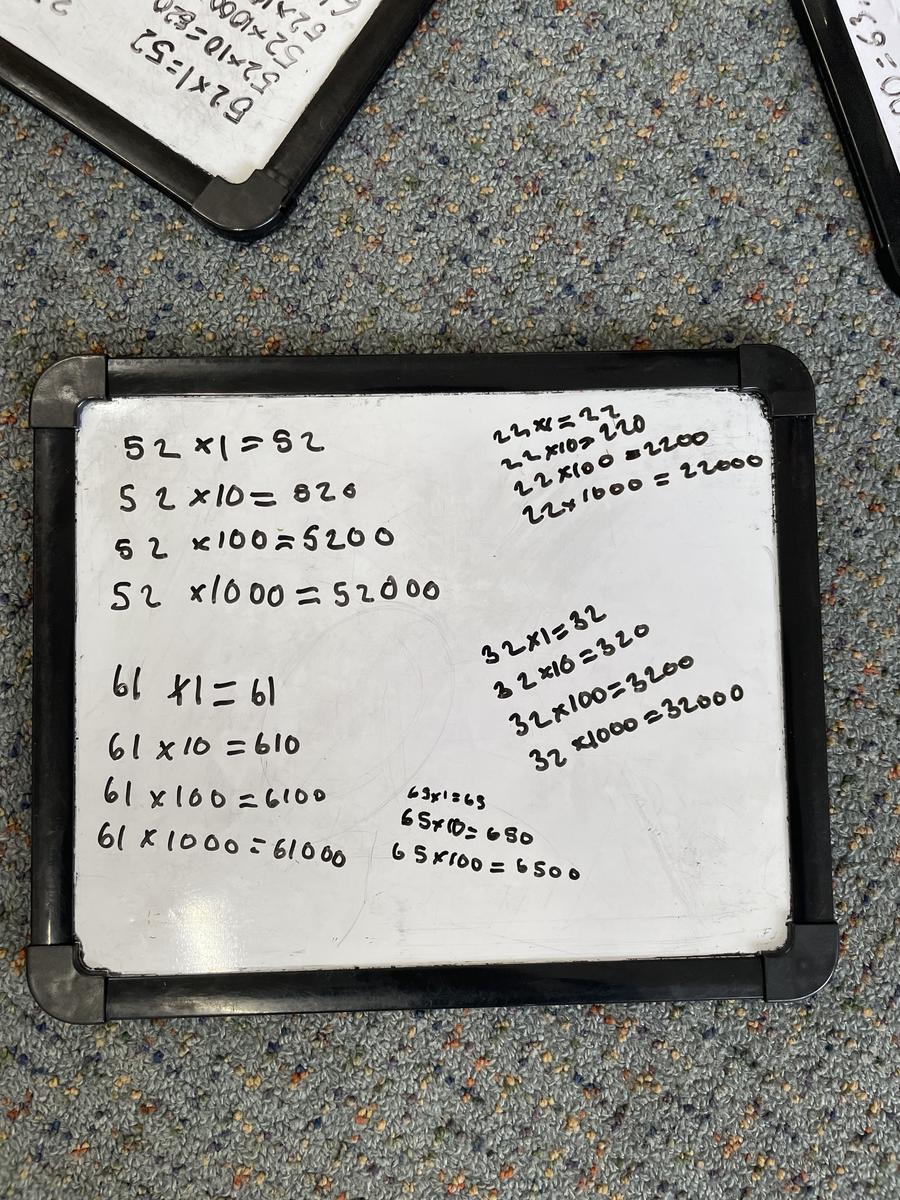 52x1=52
52x10=820
52x1000
52x1
52 x1=52
52 x10= 820
52 x100=5200
52 x1000=52000
61 x1=61
61 x10=610
61 x100=6100
61 x1000=61000
22x1=22
22x10=220
22x100=2200
22x1000=22000
32x1=32
32x10=320
32x100=3200
32x1000=32000
65x1=65
65x10=650
65x100=6500